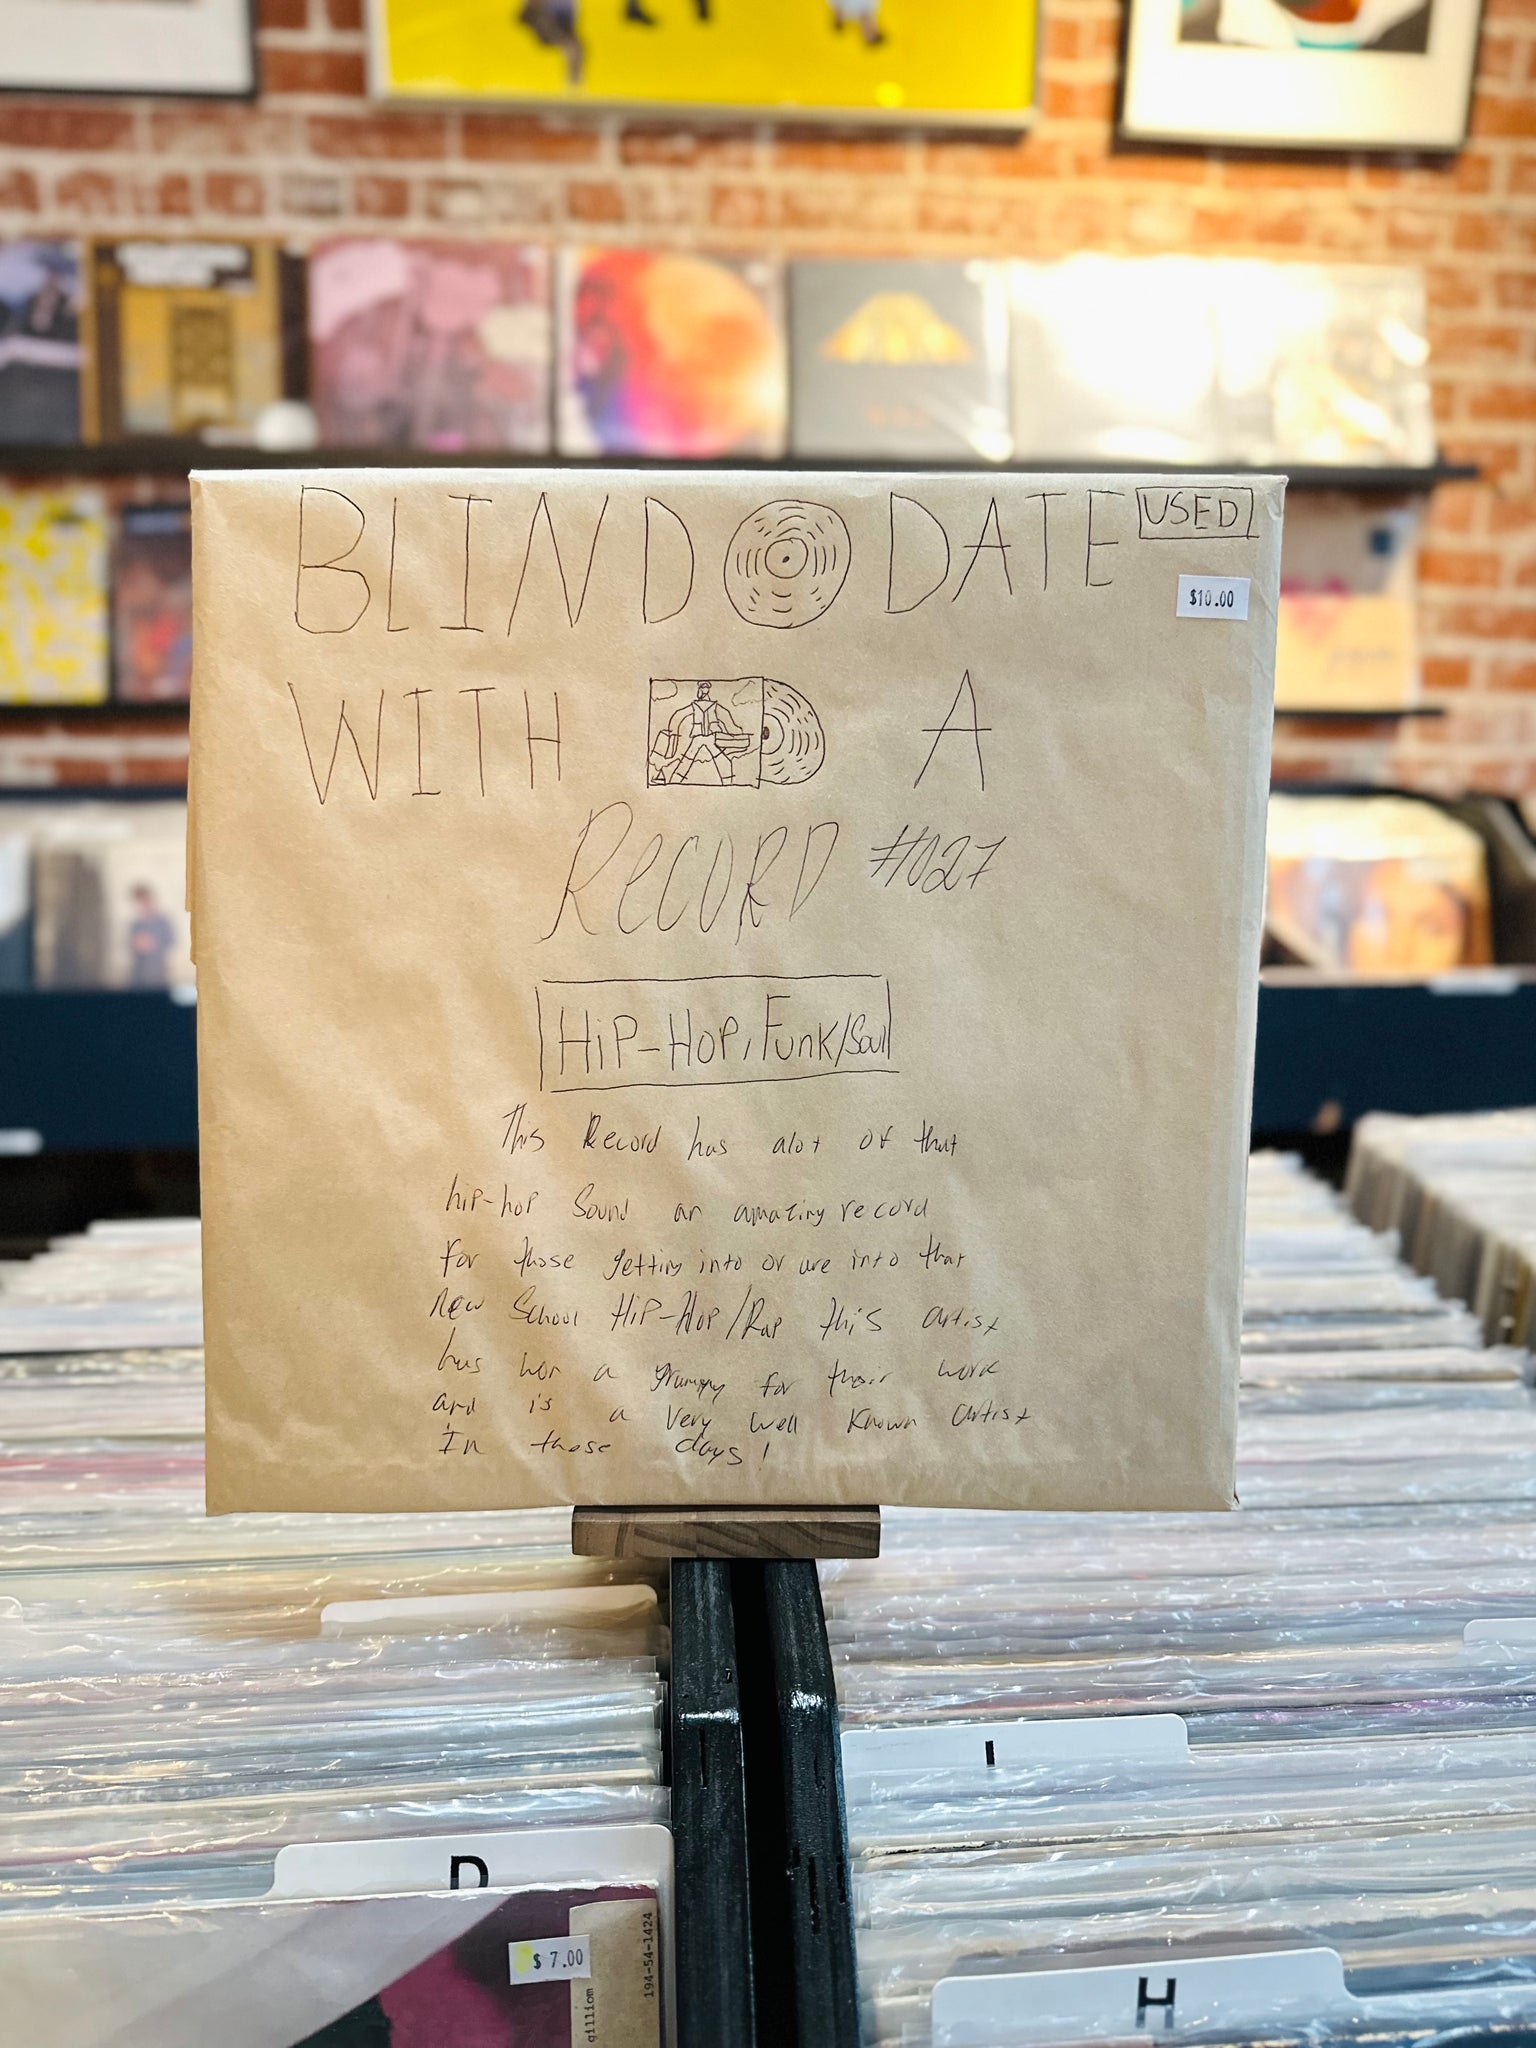 BLIND DATE USED
$10.00
WITH A
RECORD #027
HIP-HOP, FUNK/Soul
This Record has alot of that
hip-hop Sound an amazing record
for those getting into or are into that
New School HIP-HOP/Rap this artist
has won a grammy for their work
and is a very well known artist
In these days!
I
D
$ 7.00
194-54-1424
gilliom
H